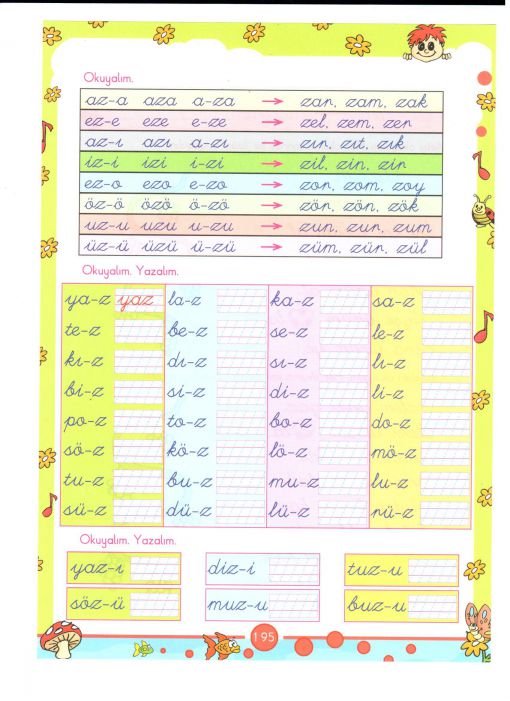 Okuyalım.
az-a aza a-za → zar, zam, zak
ez-e eze e-ze → zel, zem, zer
az-ı azı a-zı → zır, zıt, zık
iz-i izi i-zi → zil, zin, zir
ez-o ezo e-zo → zor, zom, zoy
öz-ö özö ö-zö → zör, zön, zök
uz-u uzu u-zu → zun, zur, zum
üz-ü üzü ü-zü → züm, zür, zül
Okuyalım. Yazalım.
ya-z yaz la-z ka-z sa-z
te-z be-z se-z le-z
kı-z dı-z sı-z lı-z
bi-z si-z di-z li-z
po-z to-z bo-z do-z
sö-z kö-z lö-z mö-z
tu-z bu-z mu-z lu-z
sü-z dü-z lü-z rü-z
Okuyalım. Yazalım.
yaz-ı diz-i tuz-u
söz-ü muz-u buz-u
195